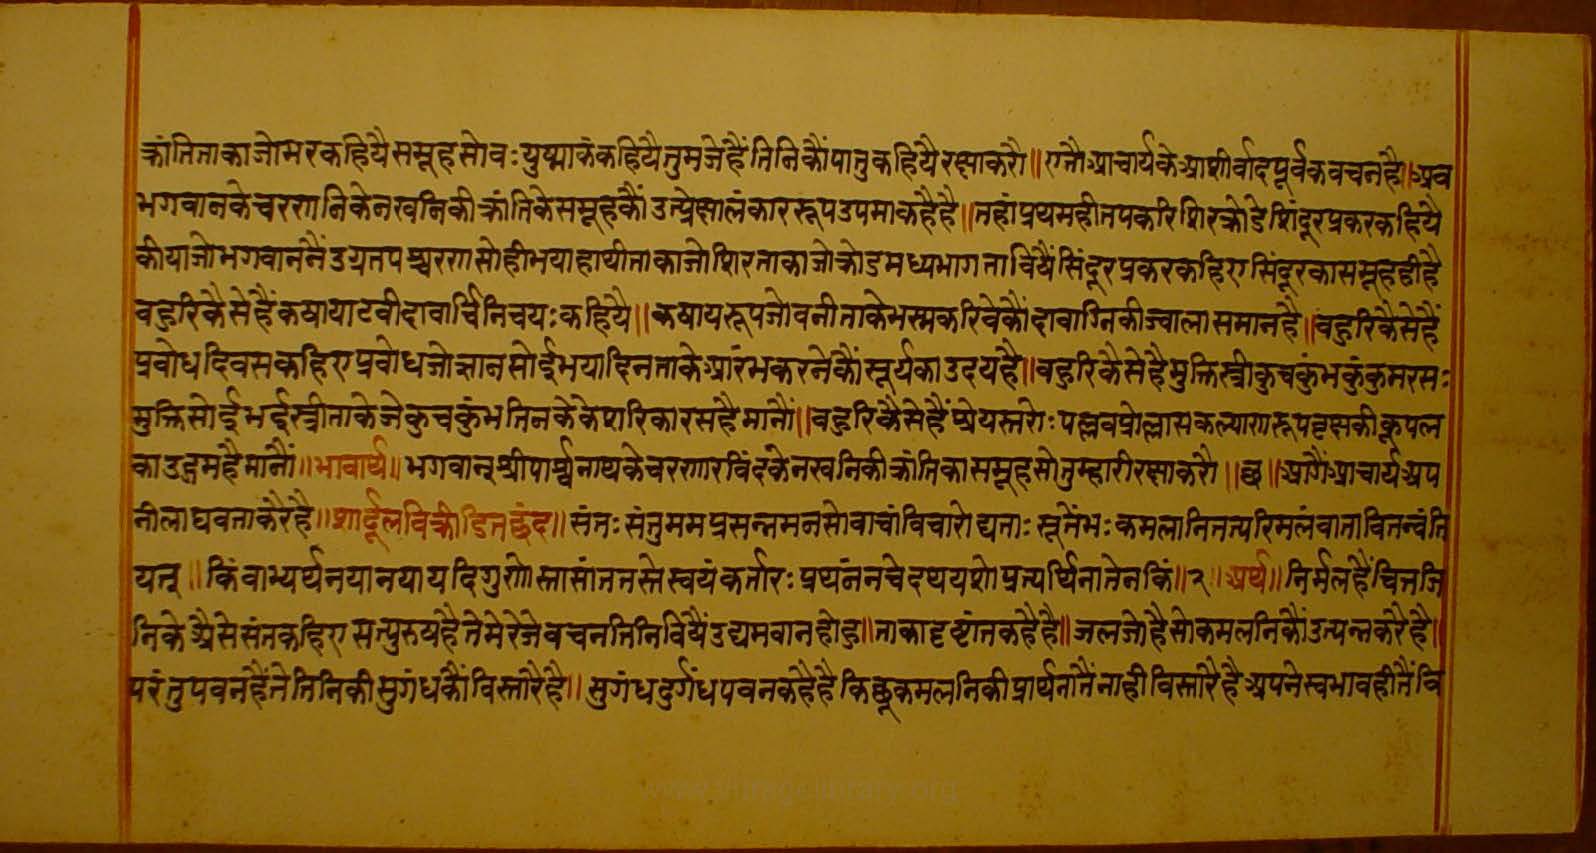 क्रांतिताकाजोभरकहियैसमूहसोवः युष्माकंकहियैतुमजेहैंतिनिकौंपातुकहियैरक्षाकरौ॥ एतौआचार्यकेआशीर्वादपूर्वकवचनहै॥अव
भगवानकेचरणनिकेनखनिकीक्रांतिकेसमूहकौंउत्प्रेक्षालंकाररूपउपमाकहैहै॥तहांप्रथमहीतपकरिशिरक्रोडेशिंदूरप्रकरकहियै
कीयाजोभगवाननैंउग्रतपश्चरणसोहीभयाहाथीताकाजोशिरताकाजोक्रोडमध्यभागताविषैंसिंदूरप्रकरकहिएसिंदूरकासमूहहीहै
बहुरिकैसेहैंकषायाटवीदावार्चिनिचयःकहियै॥कषायरूपजोवनीताकेभस्मकरिवेकौंदावाग्निकीज्वालासमानहै॥बहुरिकैसेहैं
प्रबोधदिवसकहिएप्रबोधजोज्ञानसोईभयादिनताकेप्रारंभकरनेकौंसूर्यकाउदयहै॥बहुरिकैसेहैमुक्तिस्त्रीकुचकुंभकुंकुमरसः
मुक्तिसोईभईस्त्रीताकेजेकुचकुंभतिनकेकेशरिकारसहैमानौं॥बहुरिकैसेहैंश्रेयस्तरोःपल्लवप्रोल्लासकल्याणरूपवृक्षकीकूपल
काउद्गमहैमानौं॥भावार्थ॥भगवान्श्रीपार्श्वनाथकेचरणारविंदकेनखनिकीक्रांतिकासमूहसोतुम्हारीरक्षाकरौ॥छ॥आगैंआचार्यअप
नीलाघवताकरैहै॥शार्दूलविक्रीडितछंद॥संतः संतुममप्रसन्नमनसोवाचांविचारोद्यताः सूतेंभः कमलानितत्परिमलंवातावितन्वंति
यत्॥किंवाभ्यर्थनयानयायदिगुणोस्तासांततस्तेस्वयंकर्तारः प्रथनंनचेदथयशोप्रत्यर्थिनातेनकिं॥२॥अर्थ॥निर्मलहैंचित्तजि
निकेऐसेसंतकहिएसत्पुरुषहैतेमेरेजेवचनतिनिविषैंउद्यमवानहोहु॥ताकादृष्टांतकहैहै॥जलजोहैसोकमलनिकौंउत्पन्नकरैहै॥
परंतुपवनहैंतेतिनिकीसुगंधकौंविस्तारैहै॥सुगंधदुर्गंधपवनकहैहैकिछूकमलनिकीप्रार्थनातैंनाहीविस्तारैहैअपनेस्वभावहीतैंवि